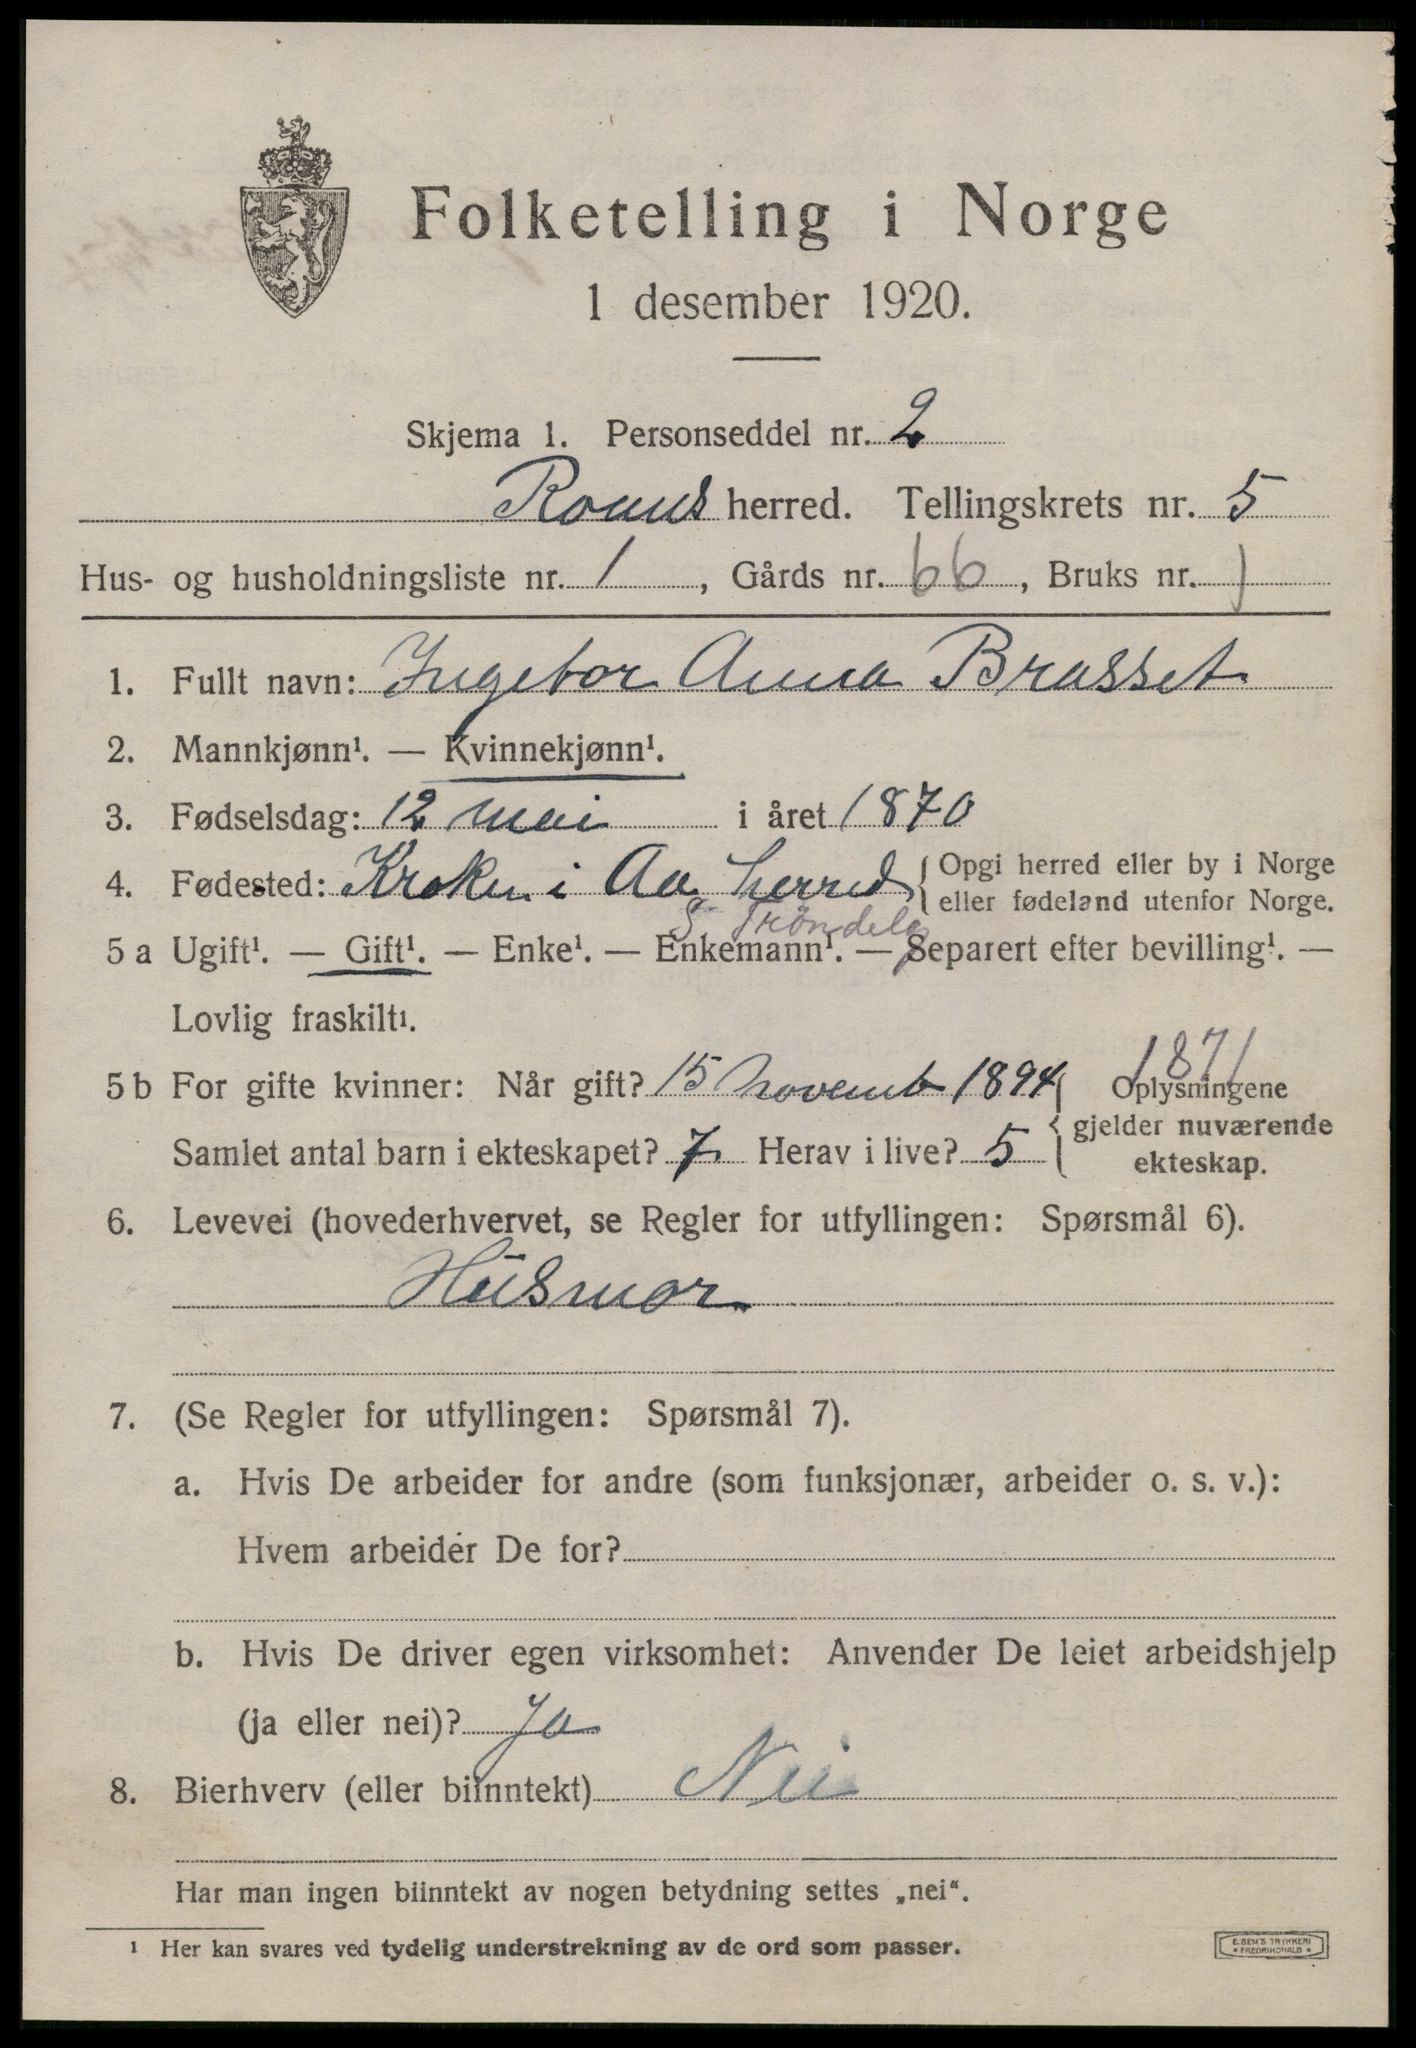 Folketelling i Norge
1 desember 1920.
Skjema 1. Personseddel nr. 2
herred. Tellingskrets nr. 5
Hus- og husholdningsliste nr. 1, Gårds nr. 66, Bruks nr. 1
1. Fullt navn: Ingebor Anna Brasset
2. Mannkjønn¹. — Kvinnekjønn¹.
3. Fødselsdag: 12 mai i året 1870
4. Fødested: Kroken i Aa herred { Opgi herred eller by i Norge
eller fødeland utenfor Norge.
S Trøndelag
5 a Ugift¹. — Gift¹. — Enke¹. — Enkemann¹. — Separert efter bevilling¹. —
Lovlig fraskilt¹.
1871
5 b For gifte kvinner: Når gift? 15 novemb 1894 { Oplysningene
gjelder nuværende
Samlet antal barn i ekteskapet? 7 Herav i live? 5
ekteskap.
6. Levevei (hovederhvervet, se Regler for utfyllingen: Spørsmål 6).
Husmor
7. (Se Regler for utfyllingen: Spørsmål 7).
a. Hvis De arbeider for andre (som funksjonær, arbeider o. s. v.):
Hvem arbeider De for?
b. Hvis De driver egen virksomhet: Anvender De leiet arbeidshjelp
(ja eller nei)? Ja
8. Bierhverv (eller biinntekt) Nei
Har man ingen biinntekt av nogen betydning settes „nei“.
¹ Her kan svares ved tydelig understrekning av de ord som passer.
E. SEM'S TRYKKERI
• FREDRIKSHALD •